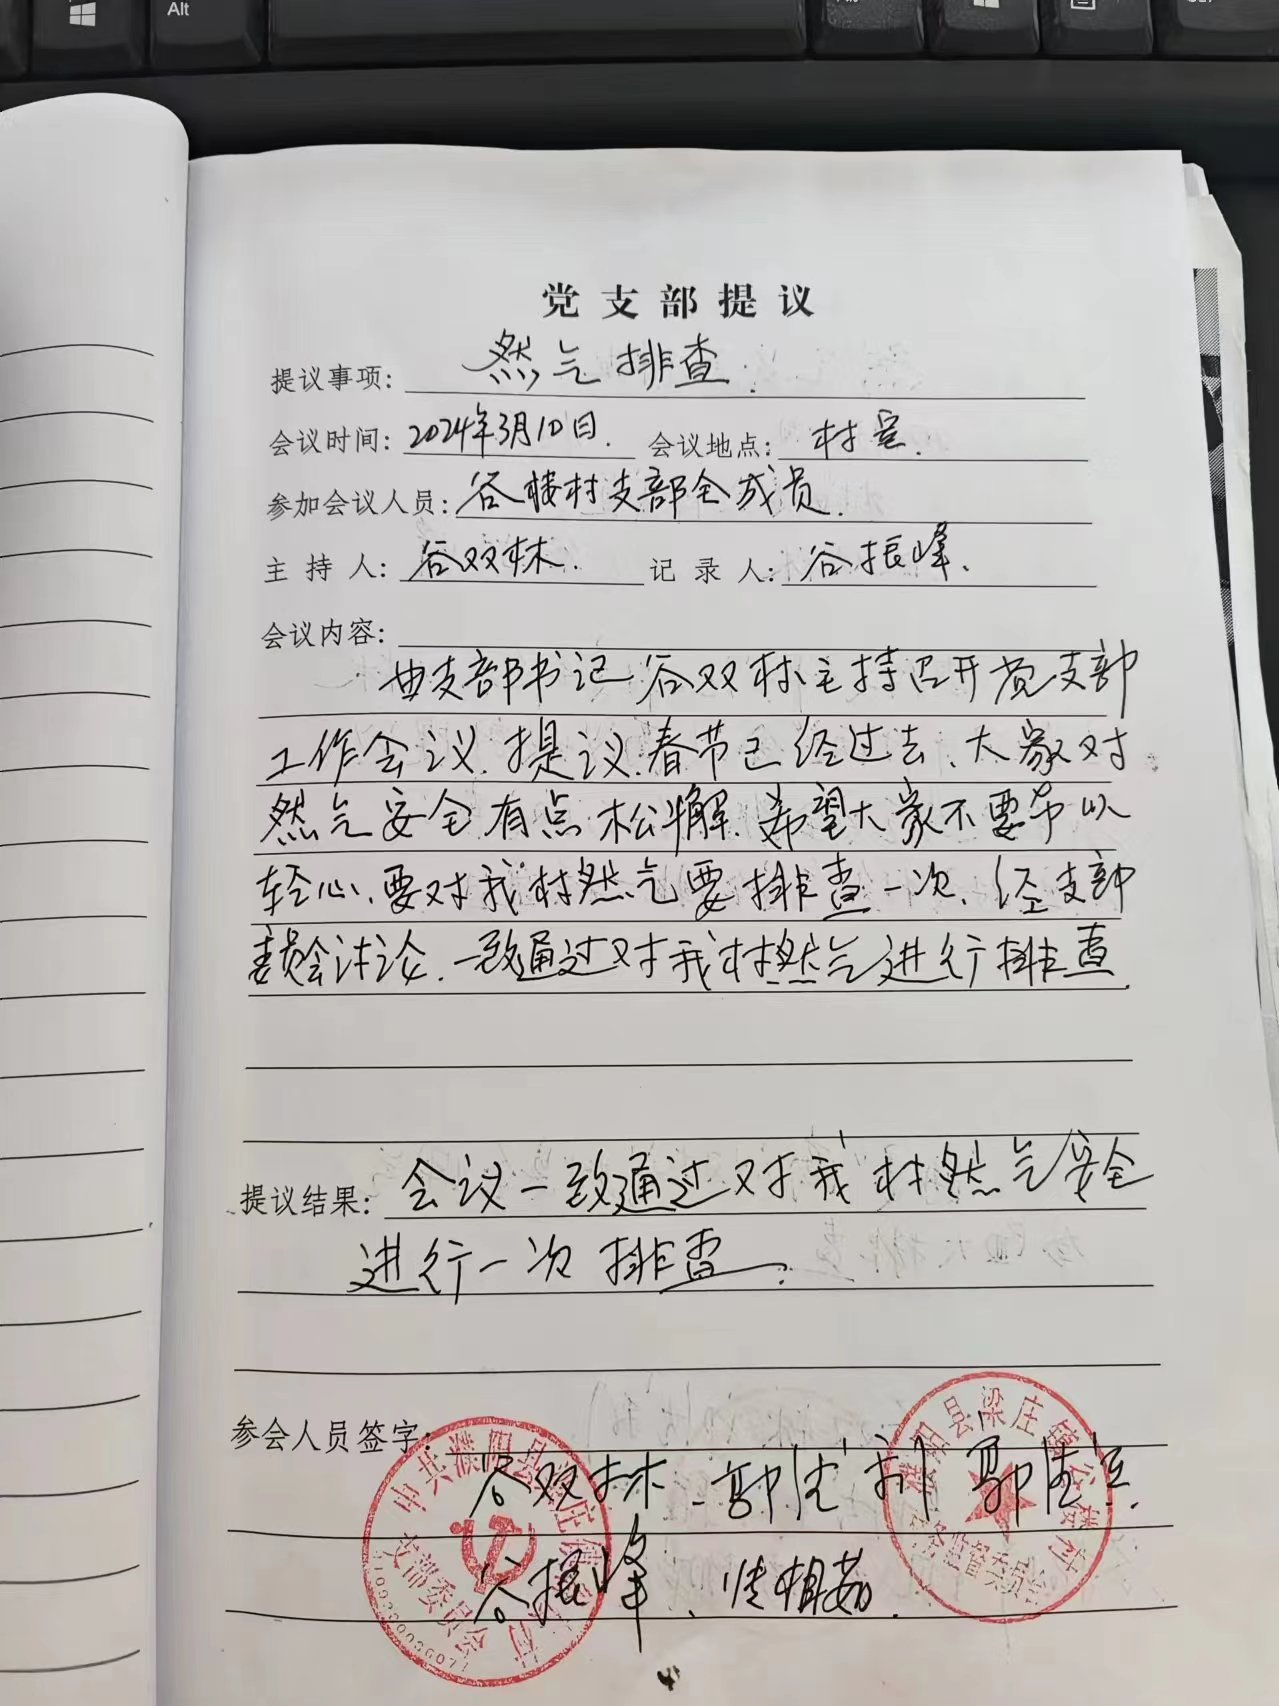 Alt
党支部提议
提议事项: 然气排查.
会议时间: 2024年3月10日. 会议地点: 村室.
参加会议人员: 谷楼村支部全成员.
主持人: 谷双林. 记录人: 谷振峰.
会议内容:
由支部书记谷双林主持召开党支部
工作会议.提议.春节已经过去.大家对
然气安全有点松懈.希望大家不要
轻心.要对我村然气要排查一次.经支部
委员会讨论.一致通过对我村然气进行排查.
提议结果: 会议一致通过对我村然气安全
进行一次排查.
参会人员签字:
谷双林
谷振峰.
中共濮阳县梁庄镇
支部委员会
濮阳县梁庄镇谷楼村
村务监督委员会